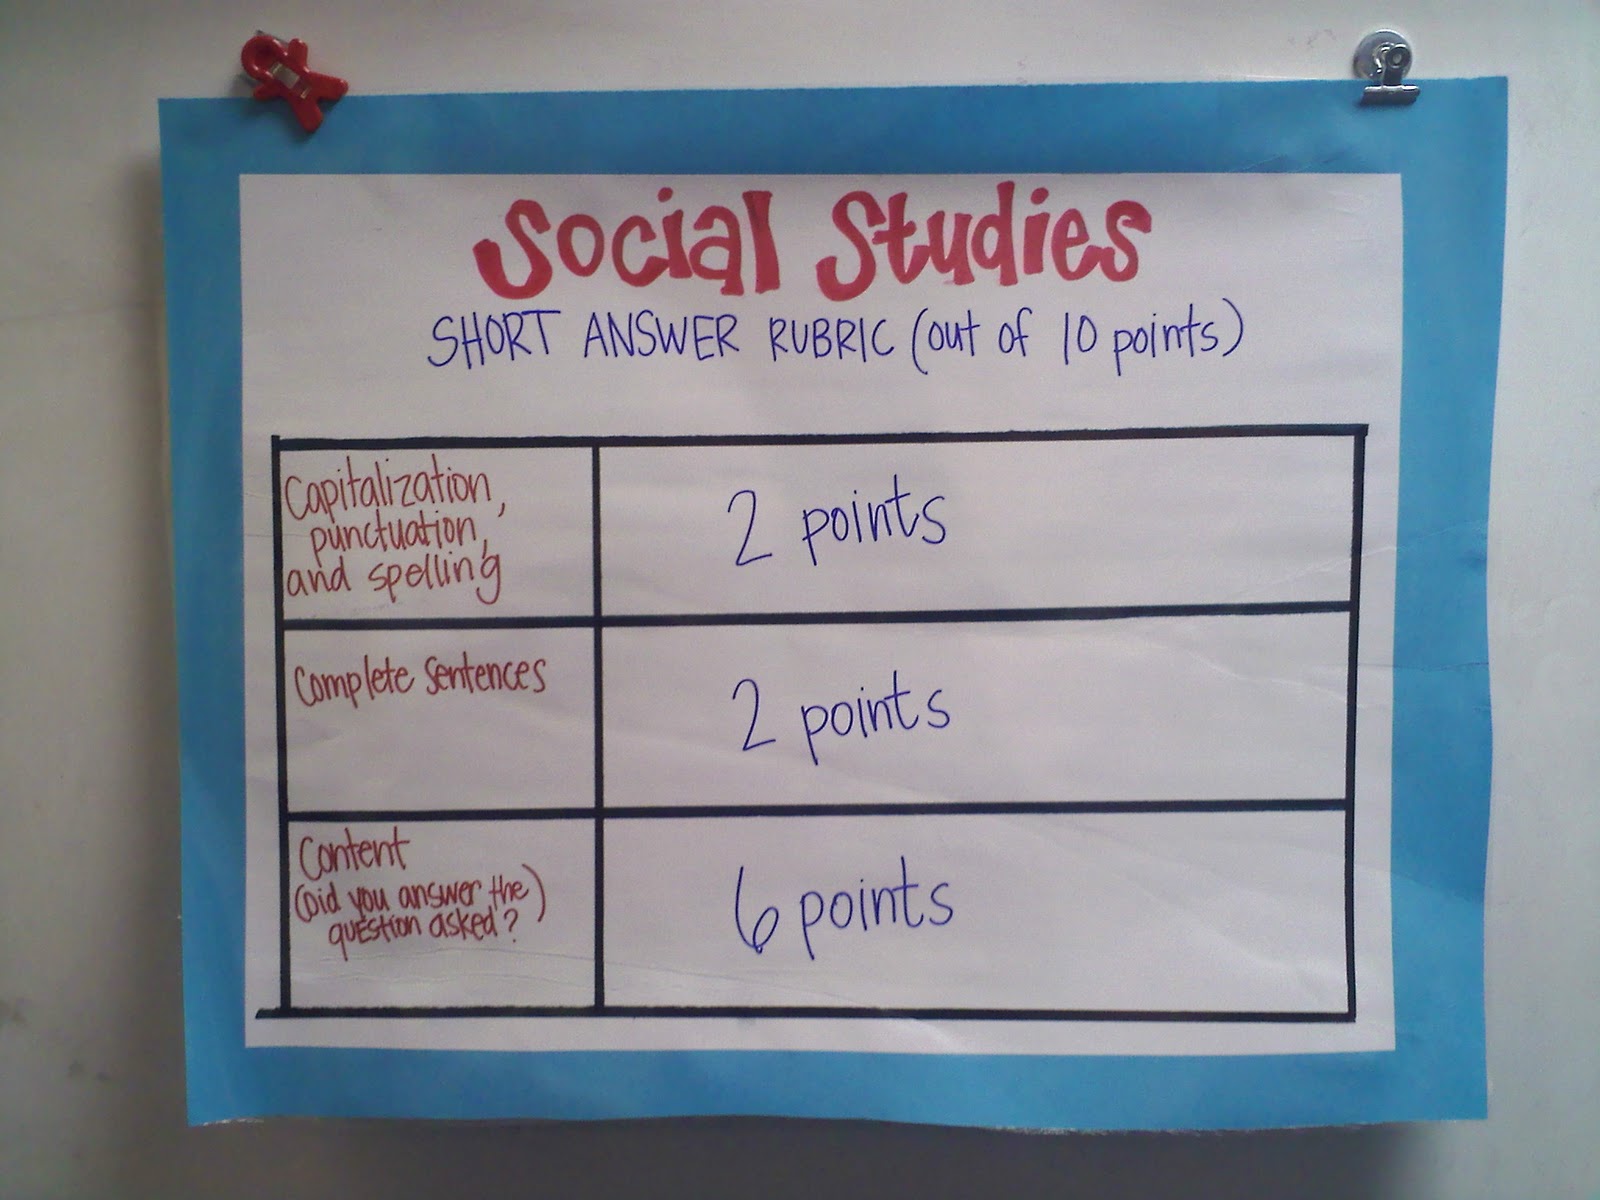 Social Studies
SHORT ANSWER RUBRIC (out of 10 points)
Capitalization,
punctuation,
and spelling
2 points
Complete Sentences
2 points
Content
(Did you answer the)
question asked?
6 points